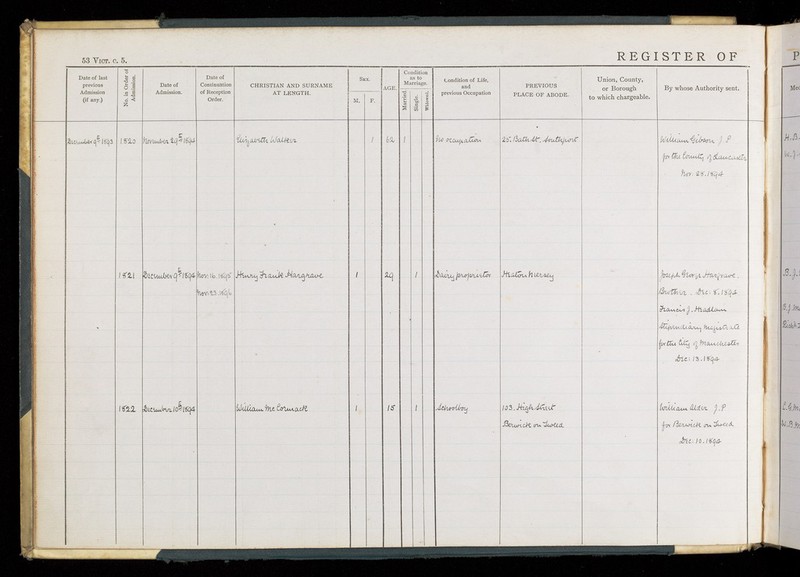 53 Vict. c. 5.
REGISTER OF
Date of last previous Admission (if any.)
No. in Order of Admission.
Date of Admission.
Date of Continuation of Reception Order.
CHRISTIAN AND SURNAME AT LENGTH.
Sex.
M.
F.
AGE.
Condition as to Marriage.
Married.
Single.
Widowed.
Condition of Life, and previous Occupation
PREVIOUS PLACE OF ABODE.
Union, County, or Borough to which chargeable.
By whose Authority sent.
December 9th 1893
1820
November 29th 1894
Elizabeth Walker
1
62
1
No occupation
25. Bath St. Southport
William Gibson J. P
for the County of Lancaster
Nov. 28. 1894
1821
December 9th 1894
Nov. 16. 1895
Nov. 23. 1896
Henry Frank Hargrave
1
29
1
Dairy proprietor
Heaton Mersey
Joseph George Hargrave.
Brother. Dec. 8. 1894
Francis J. Headlam
Stipendiary Magistrate
for the City of Manchester
Dec: 13. 1894
1822
December 10th 1894
William McCormack
1
15
1
Schoolboy
133. High Street
Berwick on Tweed
William Alder J. P
for Berwick on Tweed
Dec: 10. 1894